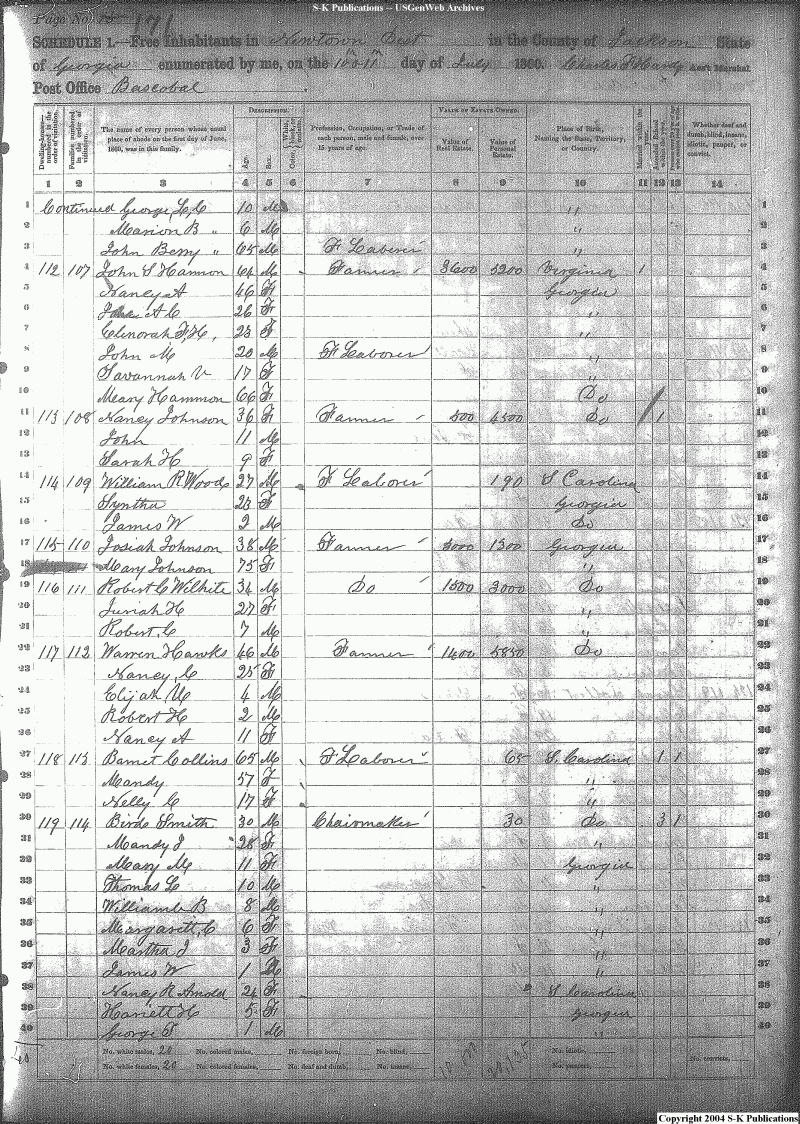 S-K Publications -- USGenWeb Archives
Page No. 171
SCHEDULE 1.—Free Inhabitants in Newtown Dist in the County of Jackson State
of Georgia enumerated by me, on the 10th-11th day of July 1860. Charles T Hardy Ass't Marshal
Post Office Bascobal
Dwelling-houses—numbered in the order of visitation. Families numbered in the order of visitation. The name of every person whose usual place of abode on the first day of June, 1860, was in this family. DESCRIPTION. Age. Sex. Color, White, black, or mulatto. Profession, Occupation, or Trade of each person, male and female, over 15 years of age. VALUE OF ESTATE OWNED. Value of Real Estate. Value of Personal Estate. Place of Birth, Naming the State, Territory, or Country. Married within the year. Attended School within the year. Whether deaf and dumb, blind, insane, idiotic, pauper, or convict.
1 2 3 4 5 6 7 8 9 10 11 12 13 14
1 Continued George L C 10 M " 1
2 Marion B " 6 M " 2
3 John Berry " 65 M F Laborer " 3
4 112 107 John S Hammon 64 M Farmer 3600 5200 Virginia 1 4
5 Nancy A 46 F Georgia 5
6 A C 26 F " 6
7 Elenorah F, H, 23 F " 7
8 John M 20 M F Laborer " 8
9 Savannah V 17 F " 9
10 Meary Hammon 66 F Do 10
11 113 108 Nancy Johnson 36 F Farmer 500 4500 Do / 1 11
12 John 11 M 12
13 Sarah H 9 F 13
14 114 109 William R Woods 27 M F Laborer 190 S Carolina 14
15 Syntha 23 F Georgia 15
16 James W 2 M Do 16
17 115 110 Josiah Johnson 38 M Farmer 3000 1500 Georgia 17
18 Mary Johnson 75 F " 18
19 116 111 Robert C Wilhite 34 M Do 1500 3000 Do 19
20 Juriah H 27 F " 20
21 Robert, C 7 M " 21
22 117 112 Warren Hawks 46 M Farmer 1400 5850 Do 22
23 Nancy, C 25 F 23
24 Elijah M 4 M 24
25 Robert H 2 M 25
26 Nancy A 11 F 26
27 118 113 Barnet Collins 65 M F Laborer 65 S. Carolina 1 1 27
28 Mandy 57 F " 28
29 Nelly C 17 F " 29
30 119 114 Birds Smith 30 M Chairmaker 30 Do 3 1 30
31 Mandy J 28 F " 31
32 Mary M 11 F Georgia 32
33 Thomas L 10 M " 33
34 Williamb B 8 M " 34
35 Margarett, C 6 F " 35
36 Martha J 3 F " 36
37 James W 1 M " 37
38 Nancy R Arnold 24 F S Carolina 38
39 Harriett H 5 F Georgia 39
40 George T 1 M " 40
No. white males, 20 No. colored males, No. foreign born, No. blind, No. idiotic,
No. white females, 20 No. colored females, No. deaf and dumb, No. insane, No. paupers, No. convicts,
Copyright 2004 S-K Publications